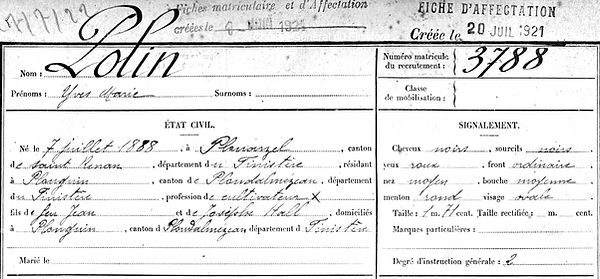 Fiches matriculaire et d'Affectation
créées le
1921
FICHE D'AFFECTATION
Créée le 20 JUIL 1921
Nom : Polin
Prénoms : Yves Marie Surnoms :
Numéro matricule du recrutement : 3788
Classe de mobilisation :
ÉTAT CIVIL.
Né le 7 juillet 1888 à Plouarzel, canton
de Saint Renan, département du Finistère, résidant
à Plouguin, canton de Ploudalmézeau, département
du Finistère, profession de cultivateur x
fils de feu Jean et de Joséphe Hall, domiciliés
à Plouguin, canton de Ploudalmézeau département du Finistère
Marié le
SIGNALEMENT.
Cheveux noirs, sourcils noirs
yeux roux, front ordinaire
nez moyen, bouche moyenne
menton rond visage ovale
Taille : 1 m. 71 cent. Taille rectifiée : m. cent.
Marques particulières :
Degré d'instruction générale : 2